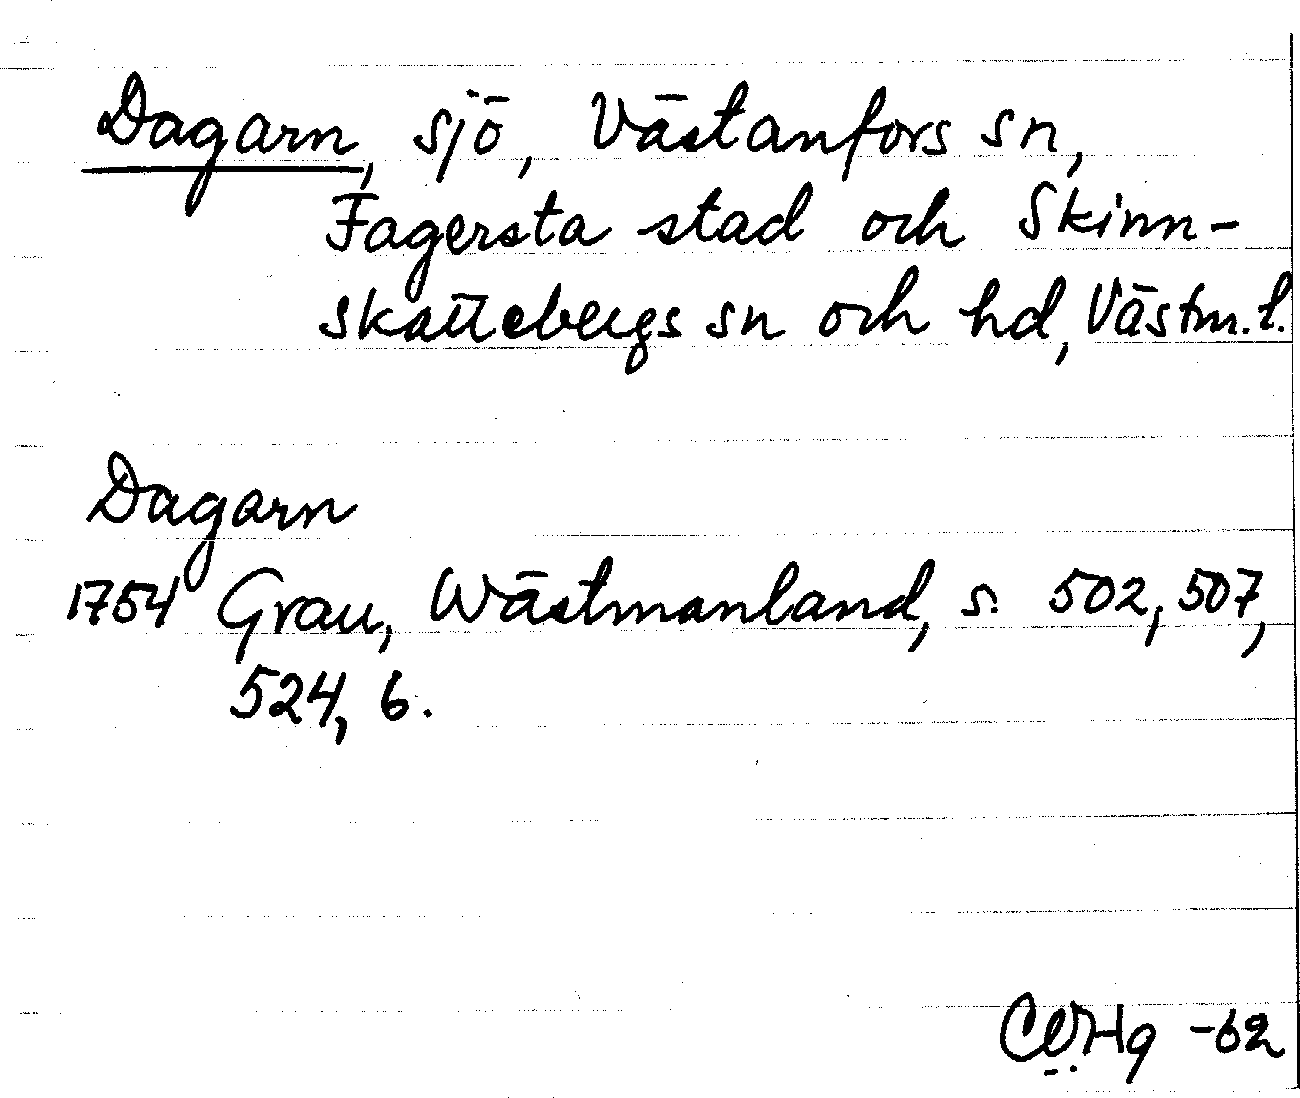 Dagarn, sjö, Västanfors sn,
Fagersta stad och Skinn-
skattebergs sn och hd, Västm. l.
Dagarn
1754 Grau, Wästmanland, s. 502, 507,
524, 6.
-62